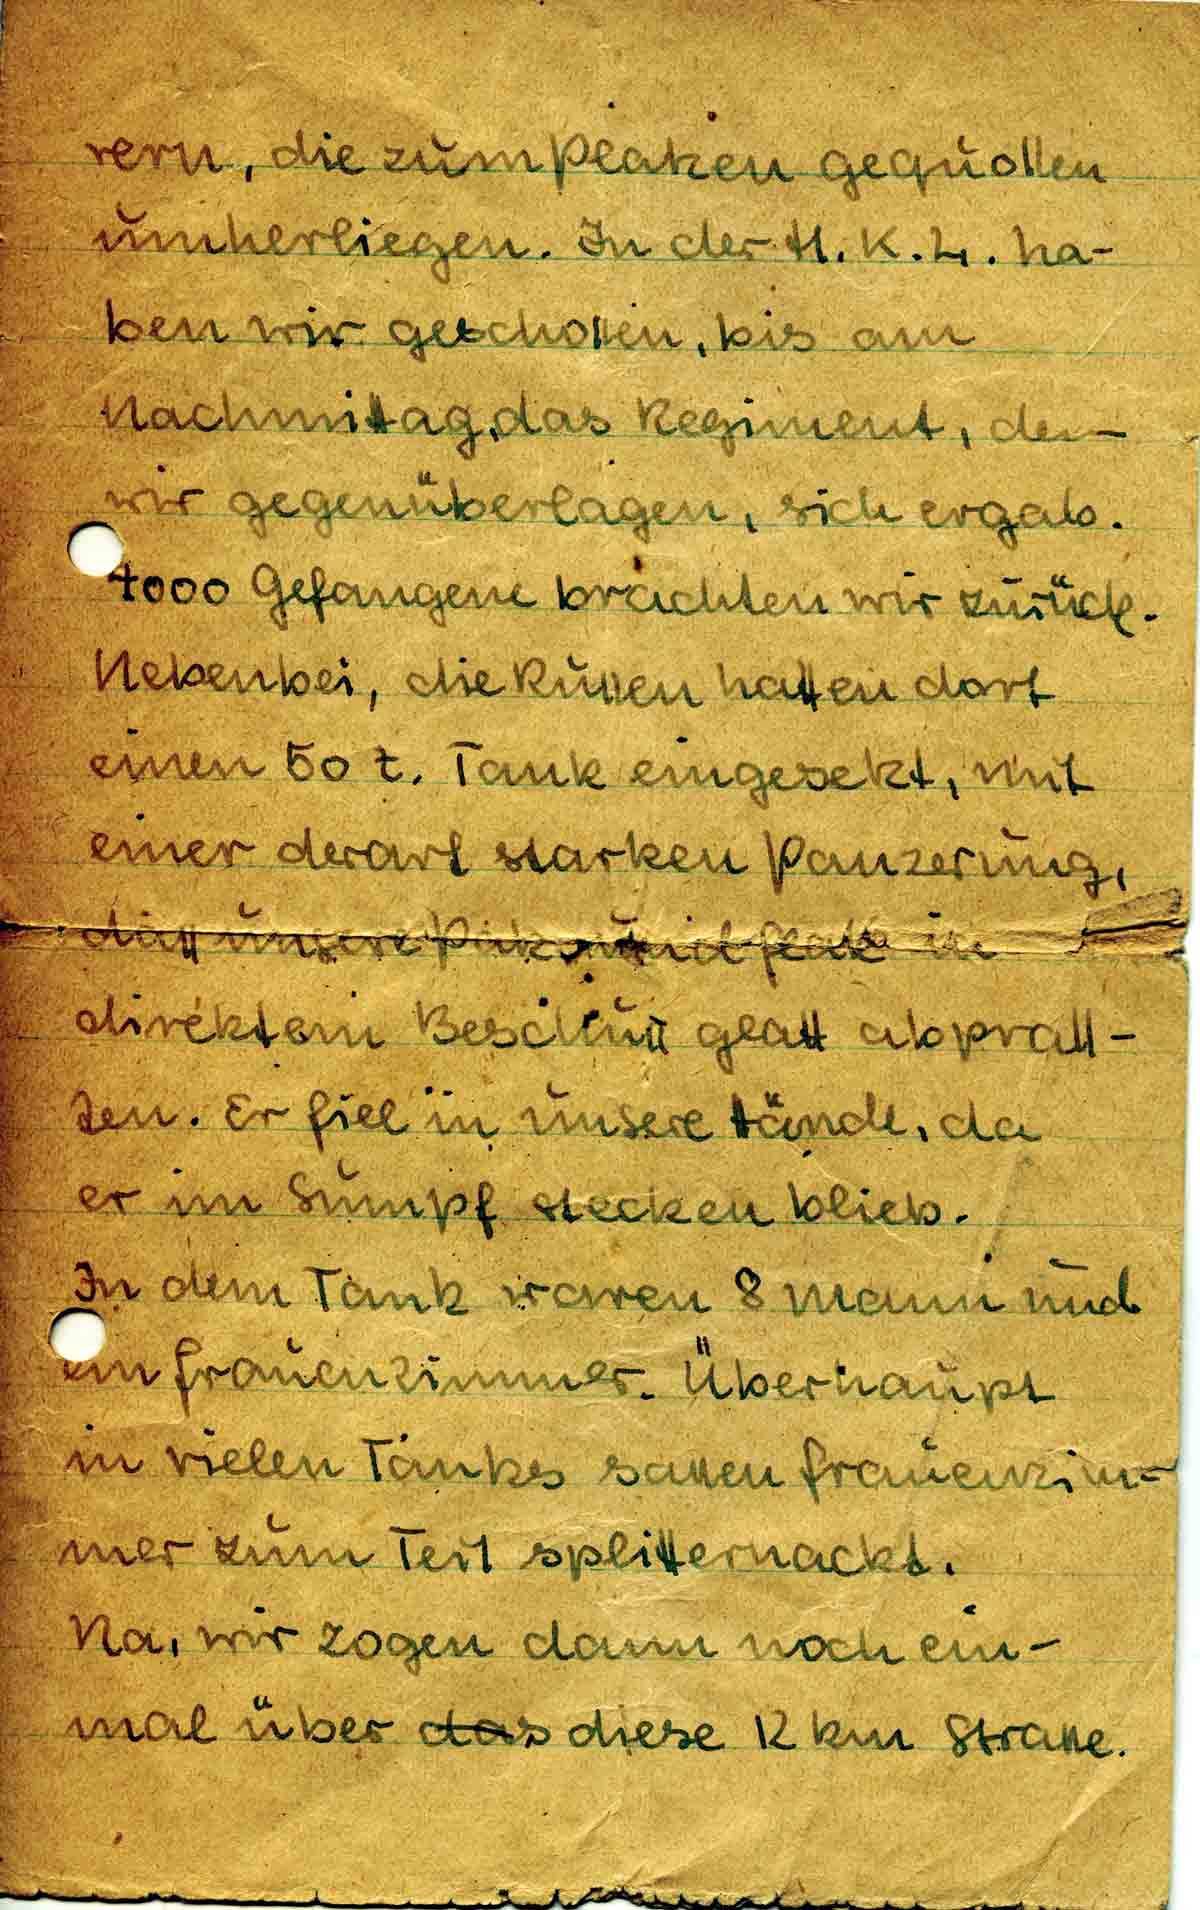 rern, die zum Platzen gequollen
umherliegen. In der H.K.L. ha-
ben wir geschossen, bis am
Nachmittag, das Regiment, dem
wir gegenüberlagen, sich ergab.
4000 Gefangene brachten wir zurück.
Nebenbei, die Russen hatten dort
einen 50 t. Tank eingesetzt, mit
einer derart starken Panzerung,
dass unsere Pak und Flak in
direktem Beschuss glatt abprall-
ten. Er fiel in unsere Hände, da
er im Sumpf stecken blieb.
In dem Tank waren 8 Mann und
ein Frauenzimmer. Überhaupt
in vielen Tanks sassen Frauenzim-
mer zum Teil splitternackt.
Na, wir zogen dann noch ein-
mal über das diese 12 km Strasse.